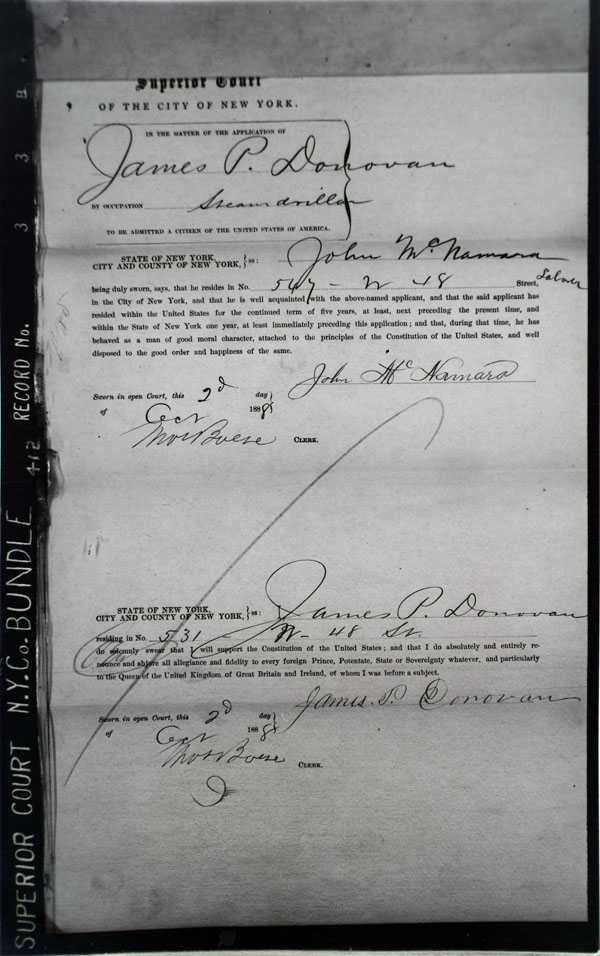 Superior Court
OF THE CITY OF NEW YORK.
IN THE MATTER OF THE APPLICATION OF
James P. Donovan
BY OCCUPATION Steam driller
TO BE ADMITTED A CITIZEN OF THE UNITED STATES OF AMERICA.
STATE OF NEW YORK,
CITY AND COUNTY OF NEW YORK, } ss: John McNamara
being duly sworn, says, that he resides in No. 547 - W 48 Street,
in the City of New York, and that he is well acquainted with the above-named applicant, and that the said applicant has
resided within the United States for the continued term of five years, at least, next preceding the present time, and
within the State of New York one year, at least immediately preceding this application; and that, during that time, he has
behaved as a man of good moral character, attached to the principles of the Constitution of the United States, and well
disposed to the good order and happiness of the same.
John McNamara
Sworn in open Court, this 2d day
of Oct 1888
Thos Boese CLERK.
STATE OF NEW YORK,
CITY AND COUNTY OF NEW YORK, } ss: James P. Donovan
residing in No. 531 - W- 48 St.
do solemnly swear that I will support the Constitution of the United States; and that I do absolutely and entirely re-
nounce and abjure all allegiance and fidelity to every foreign Prince, Potentate, State or Sovereignty whatever, and particularly
to the Queen of the United Kingdom of Great Britain and Ireland, of whom I was before a subject.
James. P. Donovan
Sworn in open Court, this 2d day
of Oct 1888
Thos Boese CLERK.
SUPERIOR COURT N.Y.Co. BUNDLE 412 RECORD No. 3 3 B